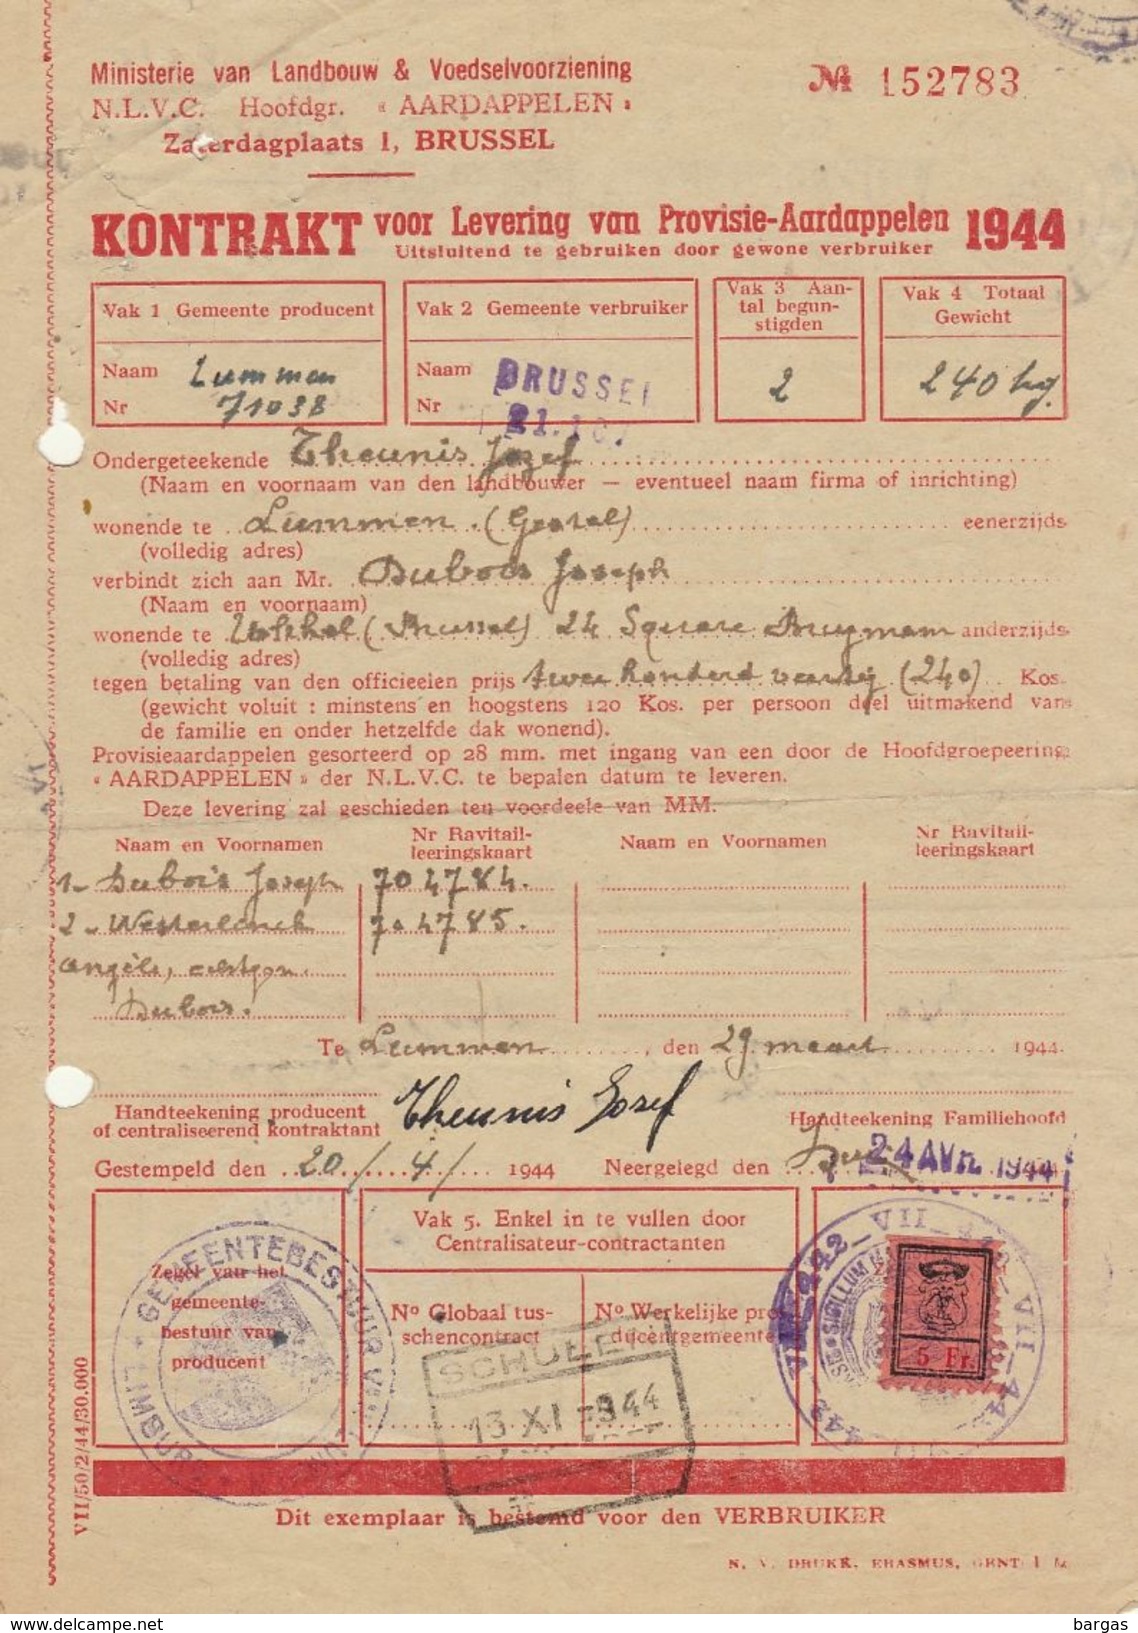 Ministerie van Landbouw & Voedselvoorziening
N.L.V.C. Hoofdgr. « AARDAPPELEN »
Zaterdagplaats 1, BRUSSEL
№ 152783
KONTRAKT voor Levering van Provisie-Aardappelen 1944
Uitsluitend te gebruiken door gewone verbruiker
Vak 1 Gemeente producent
Naam Lummen
Nr 71038
Vak 2 Gemeente verbruiker
Naam BRUSSEL
Nr 21.10
Vak 3 Aan-
tal begun-
stigden
2
Vak 4 Totaal
Gewicht
240 kg.
Ondergeteekende Theunis Jozef
(Naam en voornaam van den landbouwer — eventueel naam firma of inrichting)
wonende te Lummen (Gestel) eenerzijds
(volledig adres)
verbindt zich aan Mr. Dubois Joseph
(Naam en voornaam)
wonende te Ukkel (Brussel) 24 Square anderzijds
(volledig adres)
tegen betaling van den officieelen prijs twee honderd veertig (240) Kos.
(gewicht voluit : minstens en hoogstens 120 Kos. per persoon deel uitmakend van
de familie en onder hetzelfde dak wonend).
Provisieaardappelen gesorteerd op 28 mm. met ingang van een door de Hoofdgroepeering
« AARDAPPELEN » der N.L.V.C. te bepalen datum te leveren.
Deze levering zal geschieden ten voordeele van MM.
Naam en Voornamen
Nr Ravitail-
leeringskaart
Naam en Voornamen
Nr Ravitail-
leeringskaart
1- Dubois Joseph 704784.
2- 704785.
Angèle, echtgen.
Dubois.
Te Lummen, den 29 maart 1944.
Handteekening producent
of centraliseerend kontraktant
Theunis Jozef
Handteekening Familiehoofd
Gestempeld den 20/4/ 1944 Neergelegd den 24 AVR. 1944
Zegel van het
gemeente-
bestuur van
producent
GEMEENTEBESTUUR
LIMBURG
Vak 5. Enkel in te vullen door
Centralisateur-contractanten
No Globaal tus-
schencontract
No Werkelijke pro-
ducentgemeente
SCHULEN
13 XI 1944
442_VII_442_VII_442
SIGILLUM
5 Fr.
Dit exemplaar is bestemd voor den VERBRUIKER
N. V. DRUKK. ERASMUS, GENT
VII/50/2/44/30.000
bargas